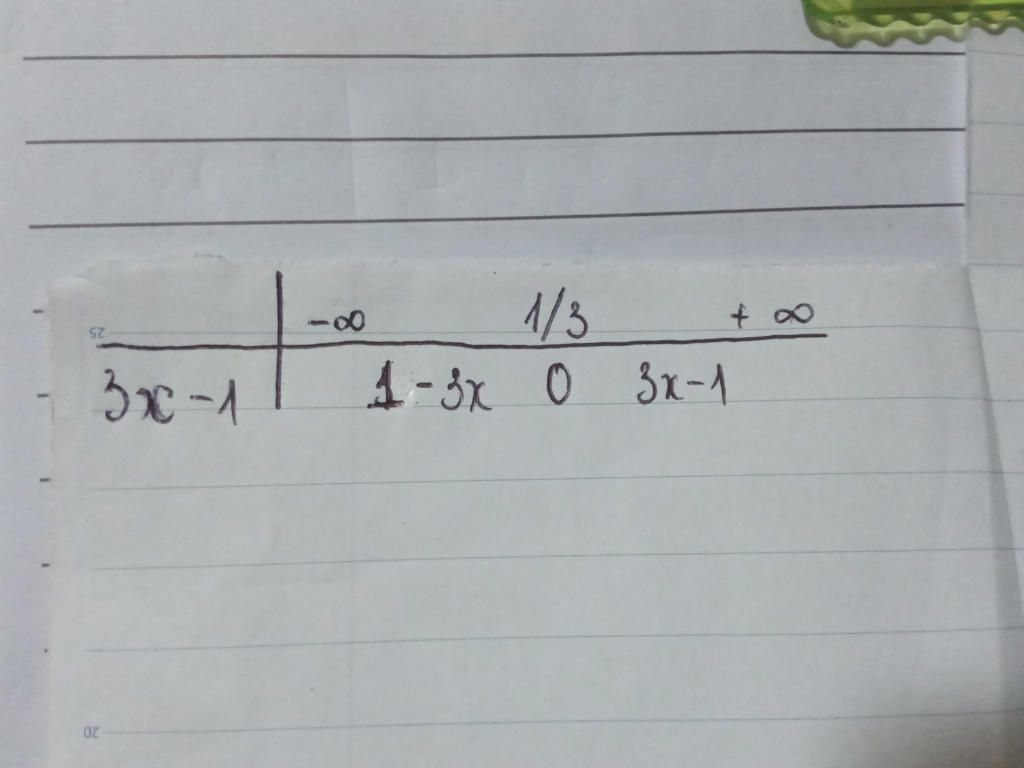 -∞ 1/3 + ∞
3x - 1 1 - 3x 0 3x - 1
25
20